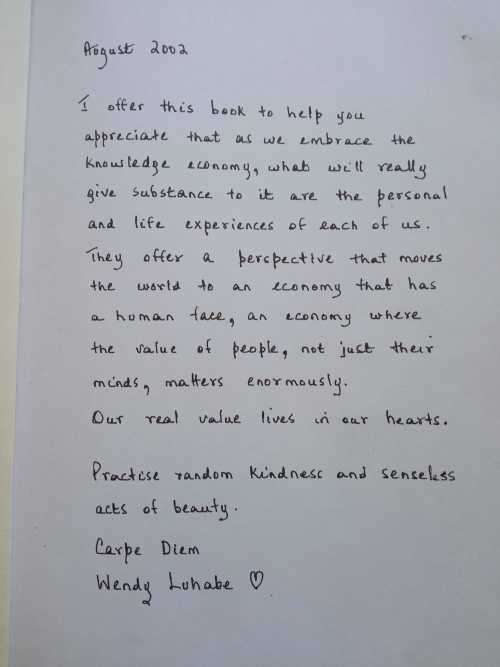 August 2002
I offer this book to help you
appreciate that as we embrace the
knowledge economy, what will really
give substance to it are the personal
and life experiences of each of us.
They offer a perspective that moves
the world to an economy that has
a human face, an economy where
the value of people, not just their
minds, matters enormously.
Our real value lives in our hearts.
Practise random kindness and senseless
acts of beauty.
Carpe Diem
Wendy Luhabe ♡